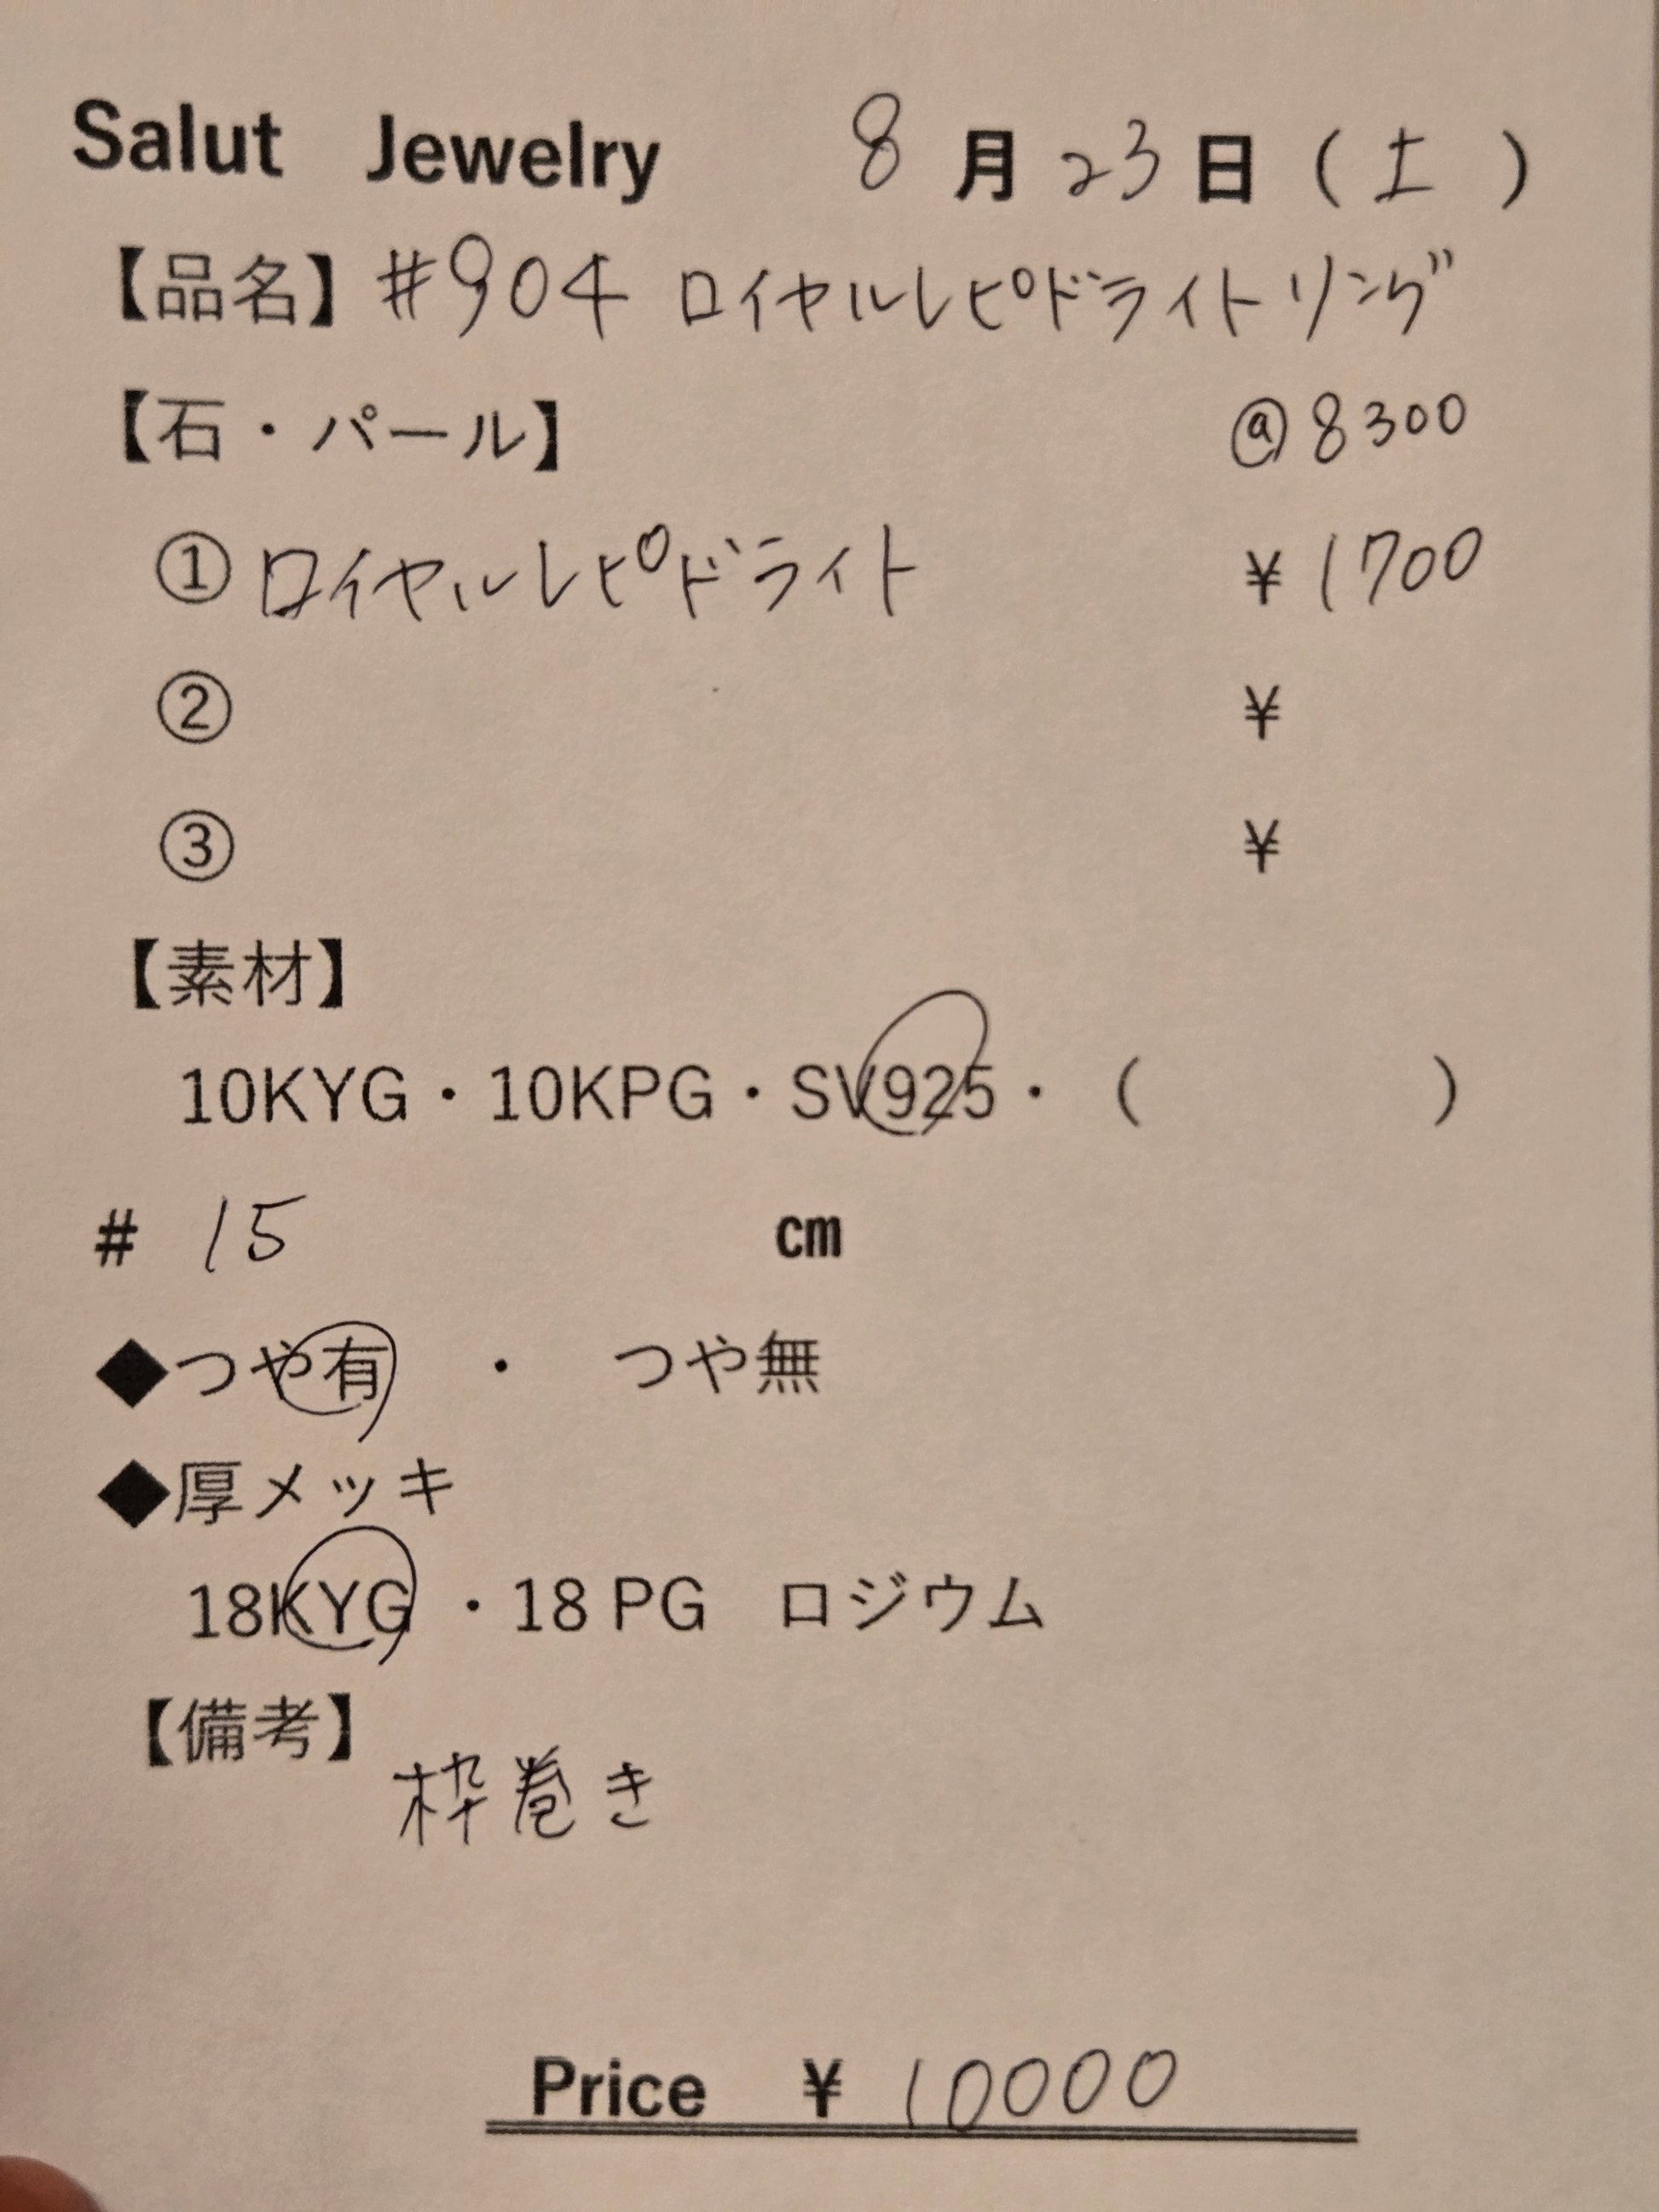 Salut Jewelry 8月23日(土)
【品名】#904 ロイヤルレピドライトリング
【石・パール】 @8300
①ロイヤルレピドライト ¥1700
② ¥
③ ¥
【素材】
10KYG・10KPG・SV925・( )
# 15 cm
◆つや有 ・ つや無
◆厚メッキ
18KYG ・18 PG ロジウム
【備考】
枠巻き
Price ¥ 10000